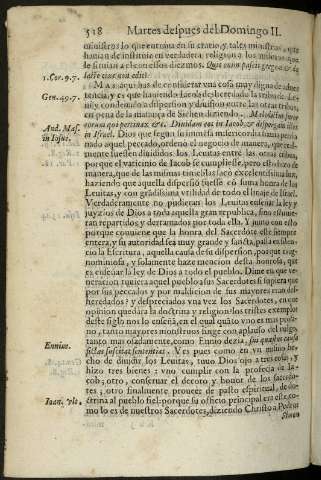 518 Martes despues del Domingo II.
ministros lo que entraua en su
de seruian a el con essos diezmos. Quis enim pascit gregem & de
1. Cor. 9. 7.
lacte eius non edit?
Mas aqui has de considerar vna cosa muy digna de aduer
tencia, y es que haziendo Iacob de
Gen. 49. 7.
niu y condenado a dispersion y diuision entre las otras tribus,
en pena de la matança de Sichen diziendo. Maledictus furor
eorum quia pertinax, &c. Diuidam eos in Iacob & dispergam eos
And. Mas.
in Iosue.
in Israel. Dios que segun su inmensa misericordia hauia perdo
nado aquel peccado, ordenó el negocio de manera, que real-
mente fuessen diuididos los Leuitas entre las otras tribus,
porque el vaticinio de Iacob se cumpliesse, pero esto fue de
manera, que de las mismas tinieblas sacó excelentissima luz,
haziendo que aquella dispersiõ fuesse cõ suma honra de los
Leuitas, y con grãdissima vtilidad de todo el linaje de Israel.
Verdaderamente no pudieran los Leuitas enseñar la ley y
juyzios de Dios a toda aquella gran republica, sino estuuie-
ran repartidos y derramados por toda ella. Y junto con esto
porque conuiene que la honra del Sacerdote esté siempre
entera, y su autoridad sea muy grande y sancta, passa en silen-
cio la Escritura, aquella causa de su dispersion, porque era ig-
nominiosa, y solamente haze mencion desta honrosa, que
era enseñar la ley de Dios a todo el pueblo. Dime en que ve-
neracion tuuiera aquel pueblo a sus Sacerdotes si supiera que
por sus peccados y por maldicion de sus mayores eran des-
heredados? y despreciados vna vez los Sacerdotes, en que
opinion quedára la doctrina y religion? los tristes exemplos
deste siglo nos lo enseñã, en el qual quãto vno es mas profa-
no, tanto mayores monstruos finge con aplauso del vulgo,
Ennius.
tanto mas osadamente, como Ennio dezia, sui quæstus causa
fictas suscitat sententias. Ves pues como en vn mismo he-
cho de diuidir los Leuitas, tuuo Dios ojo a tres cosas, y
hizo tres bienes: vno cumplir con la profecia de Ia-
cob; otro, conseruar el decoro y honor de los sacerdo-
tes; otro finalmente proueer de pasto espiritual, de do-
Ioan. vlt.
ctrina al pueblo fiel: porque su officio principal era este, co-
mo lo es de nuestros Sacerdotes, diziendo Christo a Pedro:
Simon